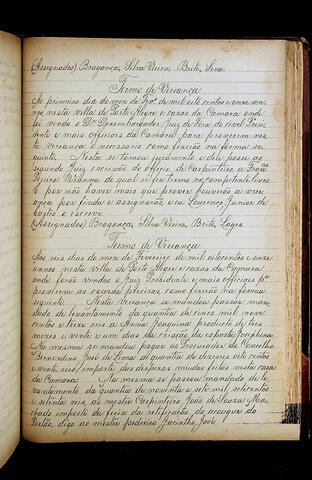 (Assignados) Bragança, Silva Vieira, Brito, Sena
Termo de Vereança
Ao primeiro dia do mez de Fevº de mil oito centos e onze an-
nos nesta villa de Porto Alegre e cazas da Camara onde
foi vindo o Dr Dezembargador Juiz de Fora do civil Prezi-
dente e mais officiaes da Camara para proverem nes-
ta vereança o necessario como fizerão na forma se-
guinte. Nesta se tomou juramento e deu posse ao
segundo Juiz escrivão do officio de Carpinteiro a Fran.co
Vieira Vianna do qual se fez termo no competente livro.
E por não haver mais que prover houverão a vere-
ança por finda e assignarão, eu Lourenço Junior de
Castro o escrevi
(Assignados) Bragança, Silva Vieira, Brito, Lages
Termo de Vereança
Aos seis dias do mez de Fevereiro de mil oitocentos e onze
annos nesta villa de Porto Alegre e cazas da Camara
onde forão vindos o Juiz Presidente e mais officiaes pª
proverem as cousas precizas, como fizerão na forma
seguinte. Nesta vereança se mandou passar man-
dado de levantamento da quantia de cinco mil nove
centos e treze reis a Anna Joaquina producto de tres
mezes e vinte e um dias da criação da exposta Josephina.
Na mesma se mandou pagar ao Procurador do Concelho
Bernardino José de Senna a quantia de dezeseis oito centos
e vinte reis importe das despezas miudas feitas nesta caza
da Camara. Na mesma se passou mandado de le-
vantamento da quantia de noventa e sete mil, setecentos
e setenta reis, ao mestre Carpinteiro João de Souza Ma-
chado importe da feria da retificação do açougue do
Portão, digo ao mestre pedreiro Jacintho José